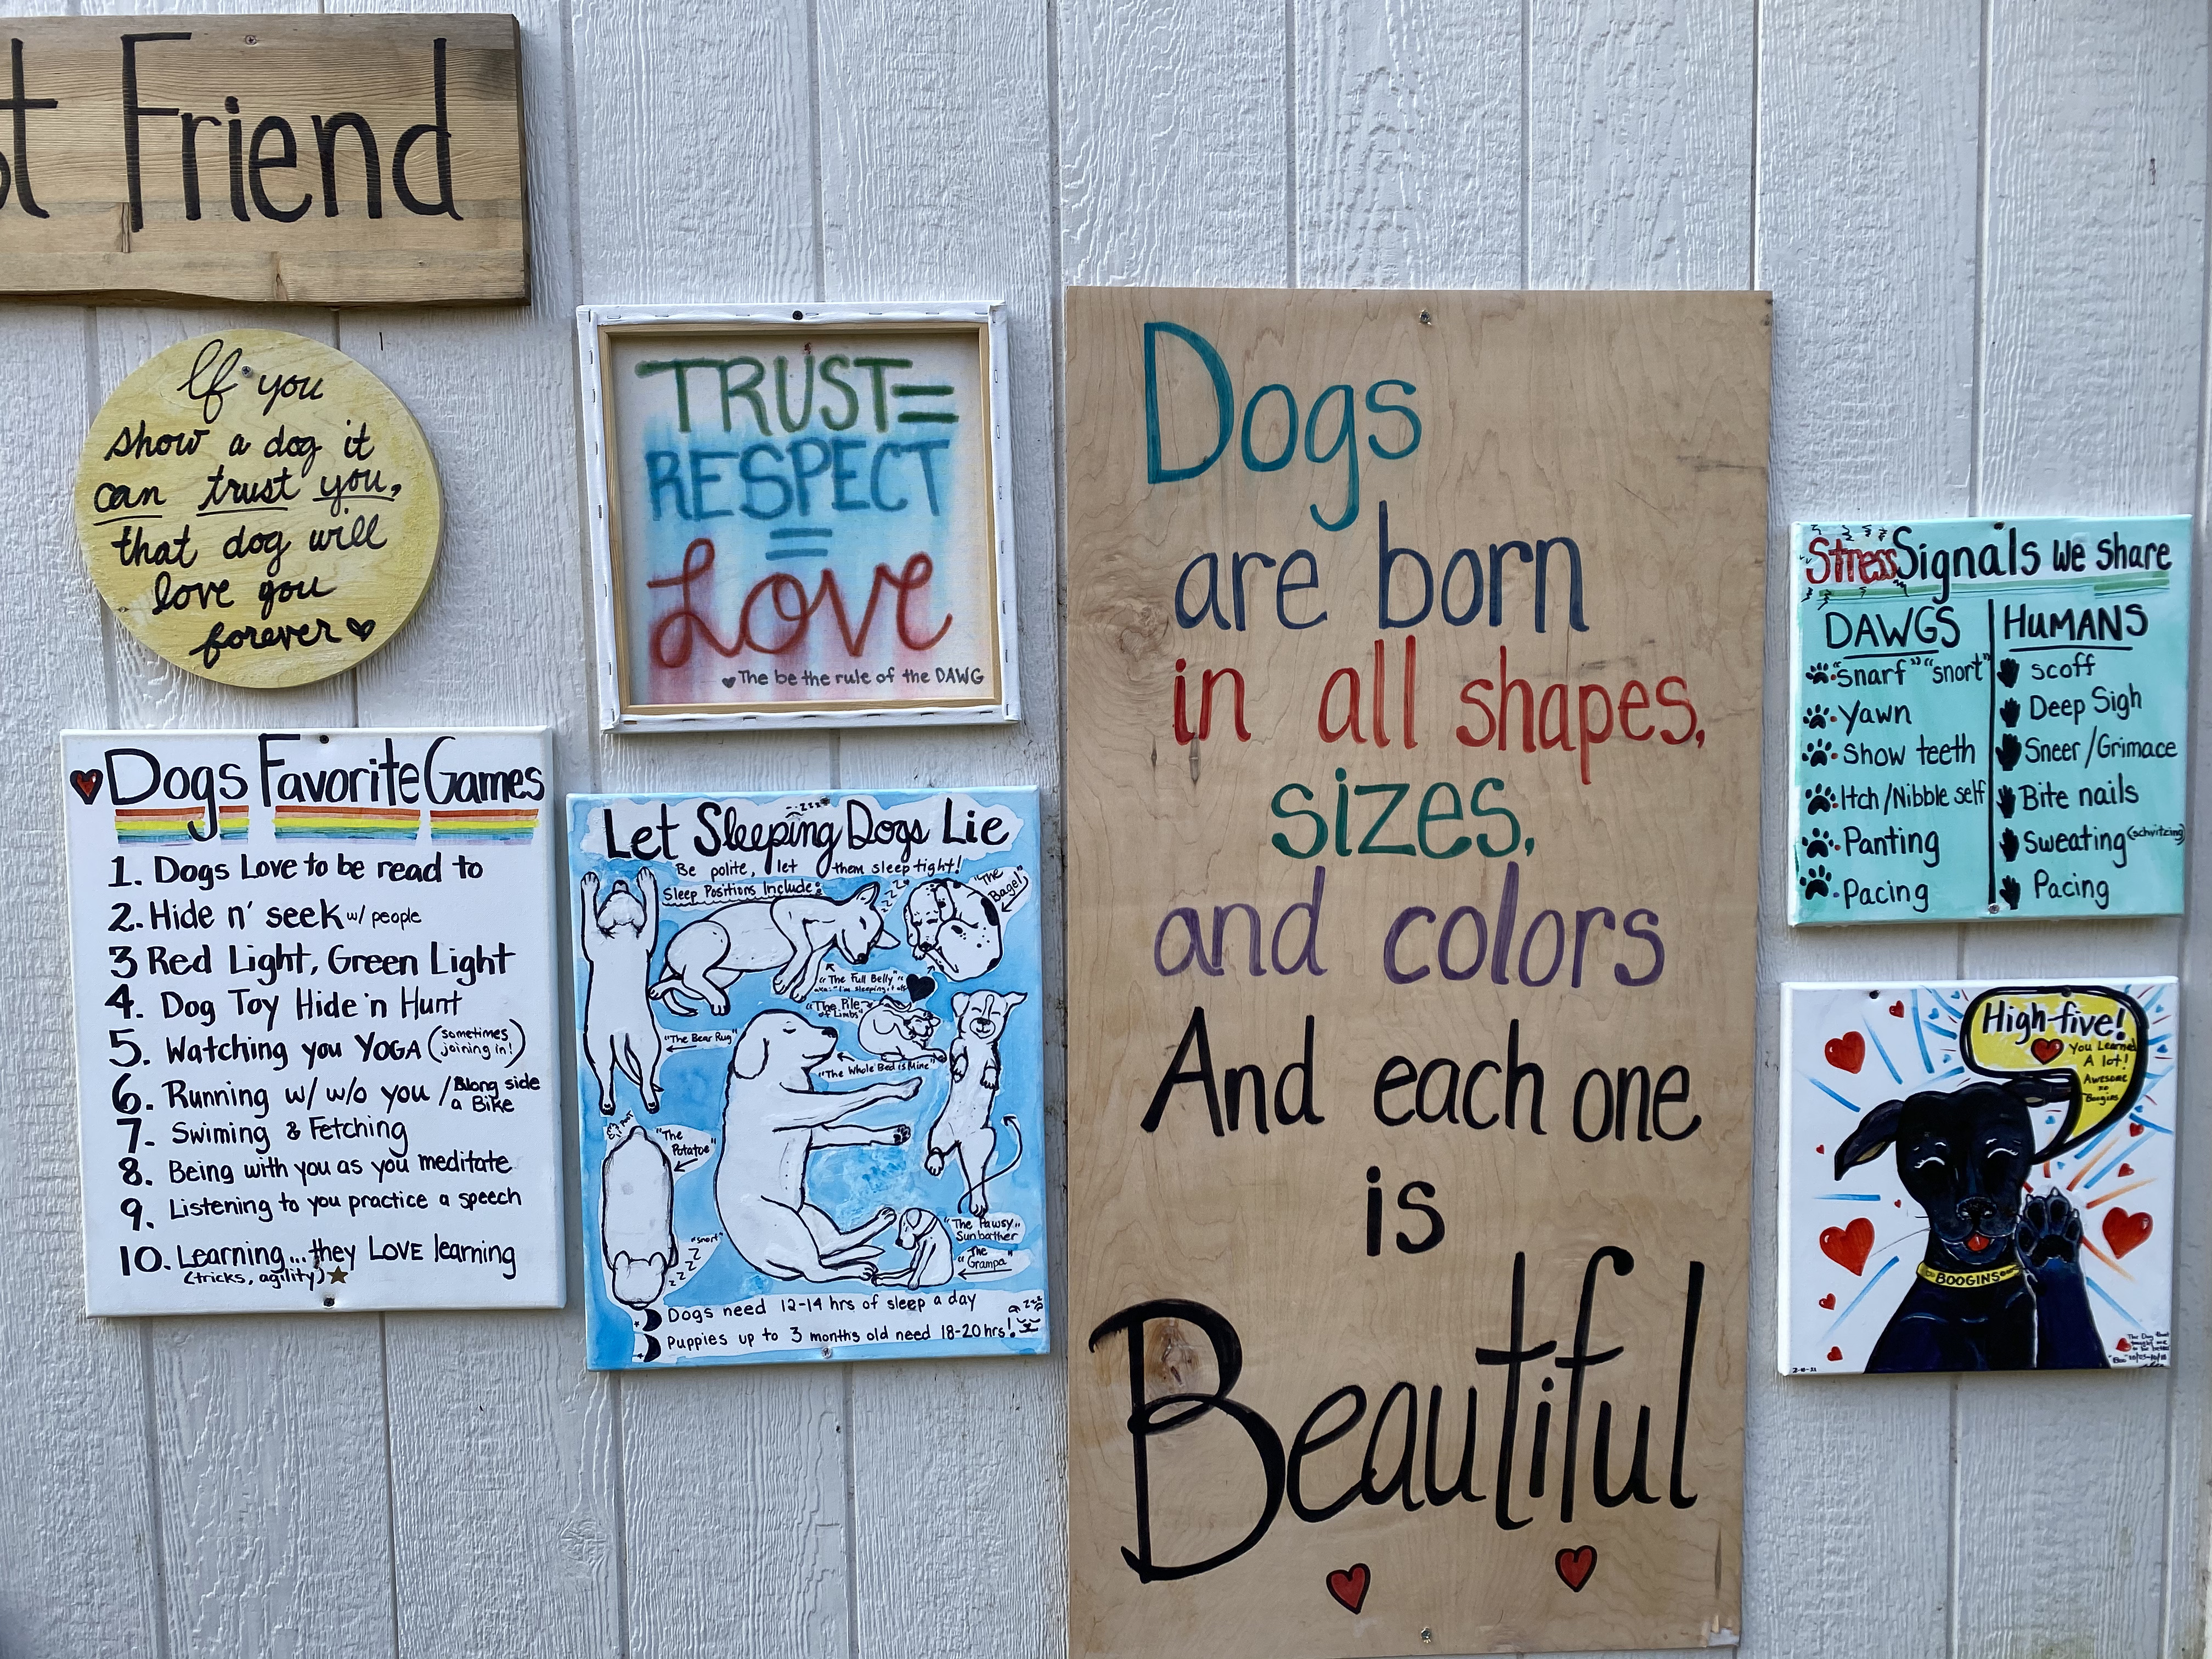 t Friend
If you
show a dog it
can trust you,
that dog will
love you
forever
TRUST=
RESPECT
=
Love
The be the rule of the DAWG
Dogs Favorite Games
1. Dogs Love to be read to
2. Hide n' seek w/ people
3 Red Light, Green Light
4. Dog Toy Hide 'n Hunt
5. Watching you YOGA (sometimes joining in!)
6. Running w/ w/o you / Along side a Bike
7. Swiming & Fetching
8. Being with you as you meditate
9. Listening to you practice a speech
10. Learning... they LOVE learning
(tricks, agility)
Let Sleeping Dogs Lie
Be polite, let them sleep tight!
Sleep Positions Include:
"The Bagel"
"The Full Belly"
"The Pile of Limbs"
"The Bear Rug"
"The Whole Bed is Mine"
"The Potatoe"
"snort"
"The Pawsy.. Sunbather
"The Grampa"
Dogs need 12-14 hrs of sleep a day
Puppies up to 3 months old need 18-20 hrs!
Dogs
are born
in all shapes,
sizes,
and colors
And each one
is
Beautiful
Stress Signals We Share
DAWGS
"snarf" "snort"
Yawn
Show teeth
Itch/Nibble self
Panting
Pacing
HUMANS
scoff
Deep Sigh
Sneer/Grimace
Bite nails
Sweating (schvitzing)
Pacing
High-five!
You Learned
A lot!
Awesome
Boogins
BOOGINS